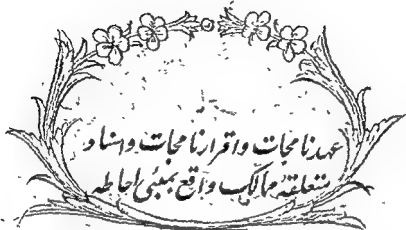 عہدنامجات واقرارنامجات واسناد
متعلقہ ممالک واقع بمبئی احاطہ